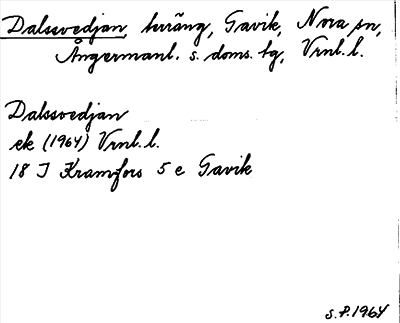 Dalssvedjan, teräng, Gavik, Nora sn,
Ångermanl. s. doms. tg, Vrnl. l.
Dalssvedjan
ek (1964) Vrnl. l.
18 I Kramfors 5 e Gavik
S.P. 1964